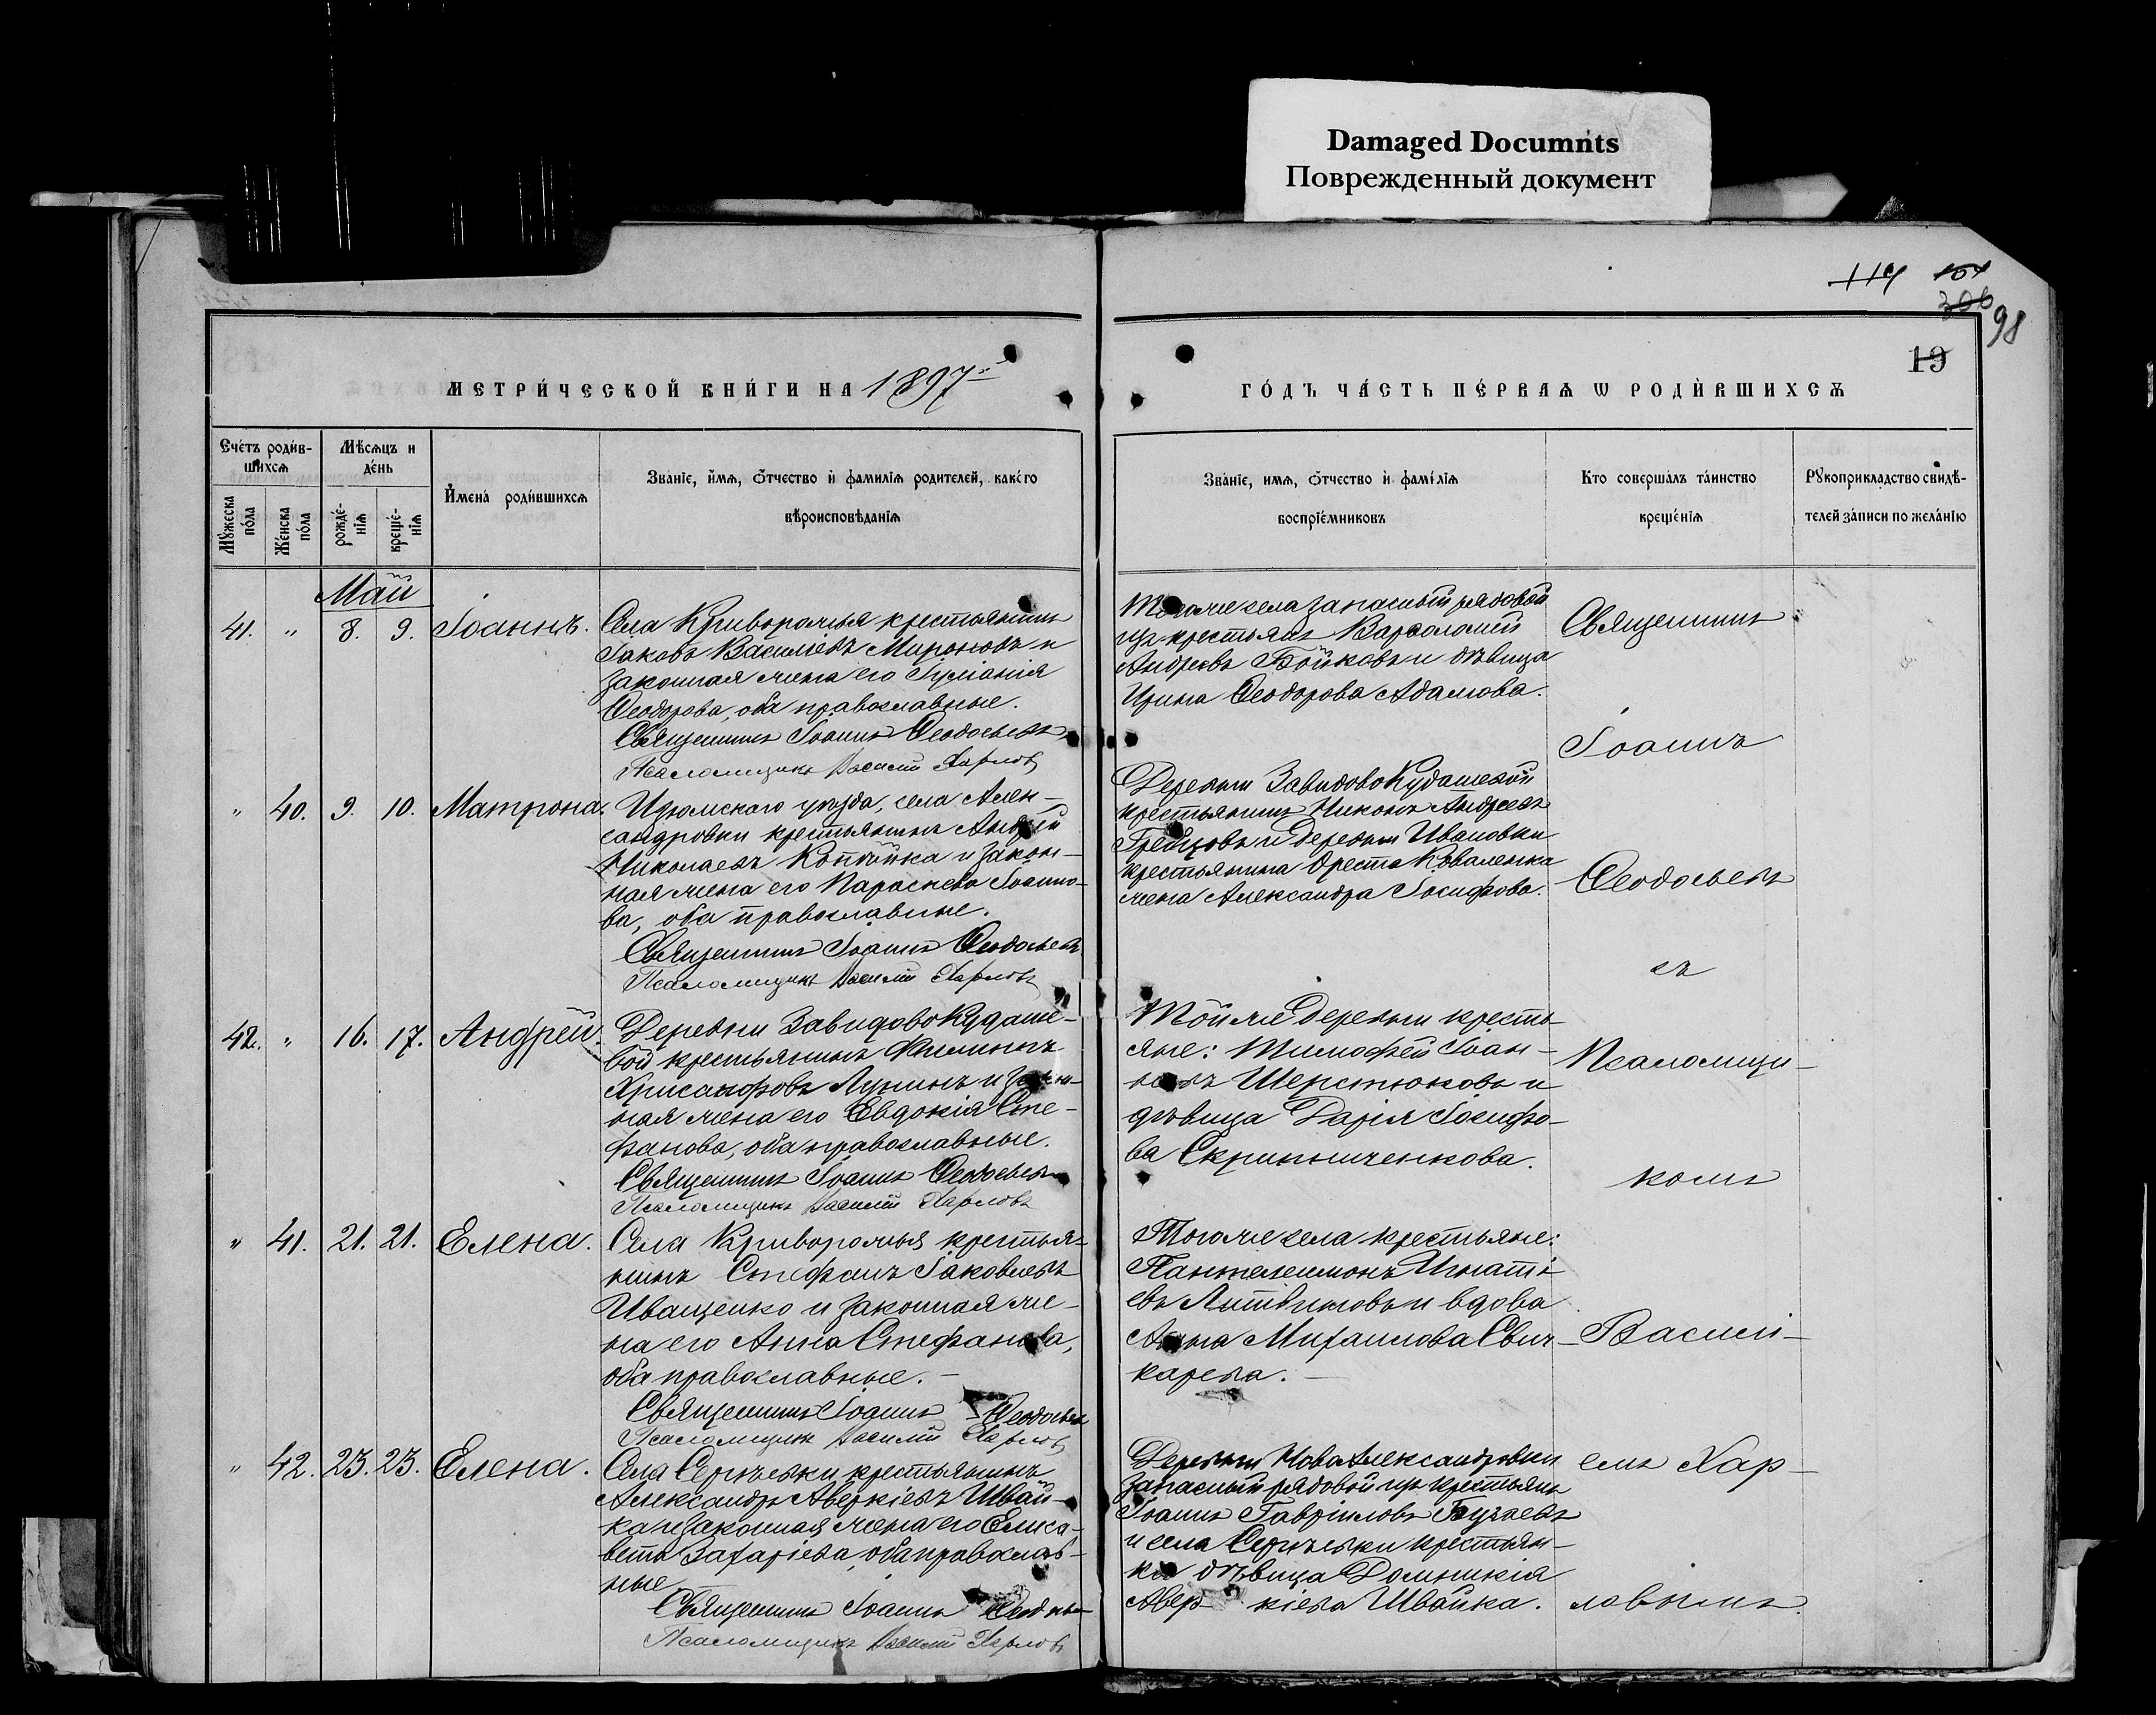 Damaged Documnts
Поврежденный документ
114 154
306
98
19
МЕТРИ́ЧЕСКОЙ КНИ́ГИ НА 1897й
ГО́ДЪ ЧА́СТЬ ПЕ́РВАѦ Ѡ РОДИ́ВШИХСѦ
Счéтъ роди́в-
шихсѧ
Мѣсѧцъ и
дéнь
Мꙋ́жеска
по́ла
Жéнска
по́ла
рождé-
нїѧ
крещé-
нїѧ
И҆мена́ роди́вшихсѧ
Зва́нїе, и҆́мѧ, ѻ҆́тчество и҆ фами́лїѧ родителей, како́го
вѣроисповѣ́данїѧ
Зва́нїе, имѧ, ѻ҆́тчество и҆ фамі́лїѧ
воспрїе́мниковъ
Кто соверша́лъ та́инство
крещéнїѧ
Рꙋкоприкладство свидѣ-
телей за́писи по жела́нїю
Май
41. " 8. 9. Іоаннъ.
Села Криворожья крестьянинъ
Іаковъ Василіевъ Мироновъ и
законная жена его Іуліанія
Ѳеодорова, оба православные.
Священникъ Іоаннъ Ѳеодосьевъ
Псаломщикъ Василій Харловъ
Тогоже села запасный рядовой
изъ крестьянъ Варѳоломей
Андреевъ Бойковъ и дѣвица
Ирина Ѳеодорова Адамова.
" 40. 9. 10. Матрона.
Изюмскаго уѣзда, села Алек-
сандровки крестьянинъ Андрей
Николаевъ Копейка и закон-
ная жена его Параскева Іоанно-
ва, оба православные.
Священникъ Іоаннъ Ѳеодосьевъ
Псаломщикъ Василій Харловъ
Деревни Завидово Кудашевой
крестьянинъ Никонъ Андреевъ
Гребцовъ и деревни Ивановки
крестьянина Ореста Коваленка
жена Александра Іосифова.
42. " 16. 17. Андрей.
Деревни Завидово Кудаше-
вой крестьянинъ Филиппъ
Хрисанфовъ Лунинъ и закон-
ная жена его Евдокія Сте-
фанова, оба православные.
Священникъ Іоаннъ Ѳеодосьевъ
Псаломщикъ Василій Харловъ
Тойже деревни кресть-
яне: Тимофей Іоан-
новъ Шерстюковъ и
дѣвица Дарія Іосифо-
ва Скрипниченкова.
" 41. 21. 21. Елена.
Села Криворожья крестья-
нинъ Стефанъ Іаковлевъ
Иващенко и законная же-
на его Анна Стефанова,
оба православные. -
Священникъ Іоаннъ Ѳеодосьевъ
Псаломщикъ Василій Харловъ
Тогоже села крестьяне:
Пантелеимонъ Игнаті-
евъ Литвиновъ и вдова
Анна Михаилова Свин-
карева. -
" 42. 23. 23. Елена.
Села Сергѣевки крестьянинъ
Александръ Аверкіевъ Швай-
ка и законная жена его Елиса-
вета Захаріева, оба православ-
ные
Священникъ Іоаннъ Ѳеодосьевъ
Псаломщикъ Василій Харловъ
Деревни НовоАлександровки
запасный рядовой изъ крестьянъ
Іоаннъ Гавріиловъ
и села Сергѣевки крестьян-
ка дѣвица Домникія
Аверкіева Швайка.
Священникъ
Іоаннъ
Ѳеодосьевъ
съ
Псаломщи-
комъ
Василі-
емъ Хар-
ловымъ.